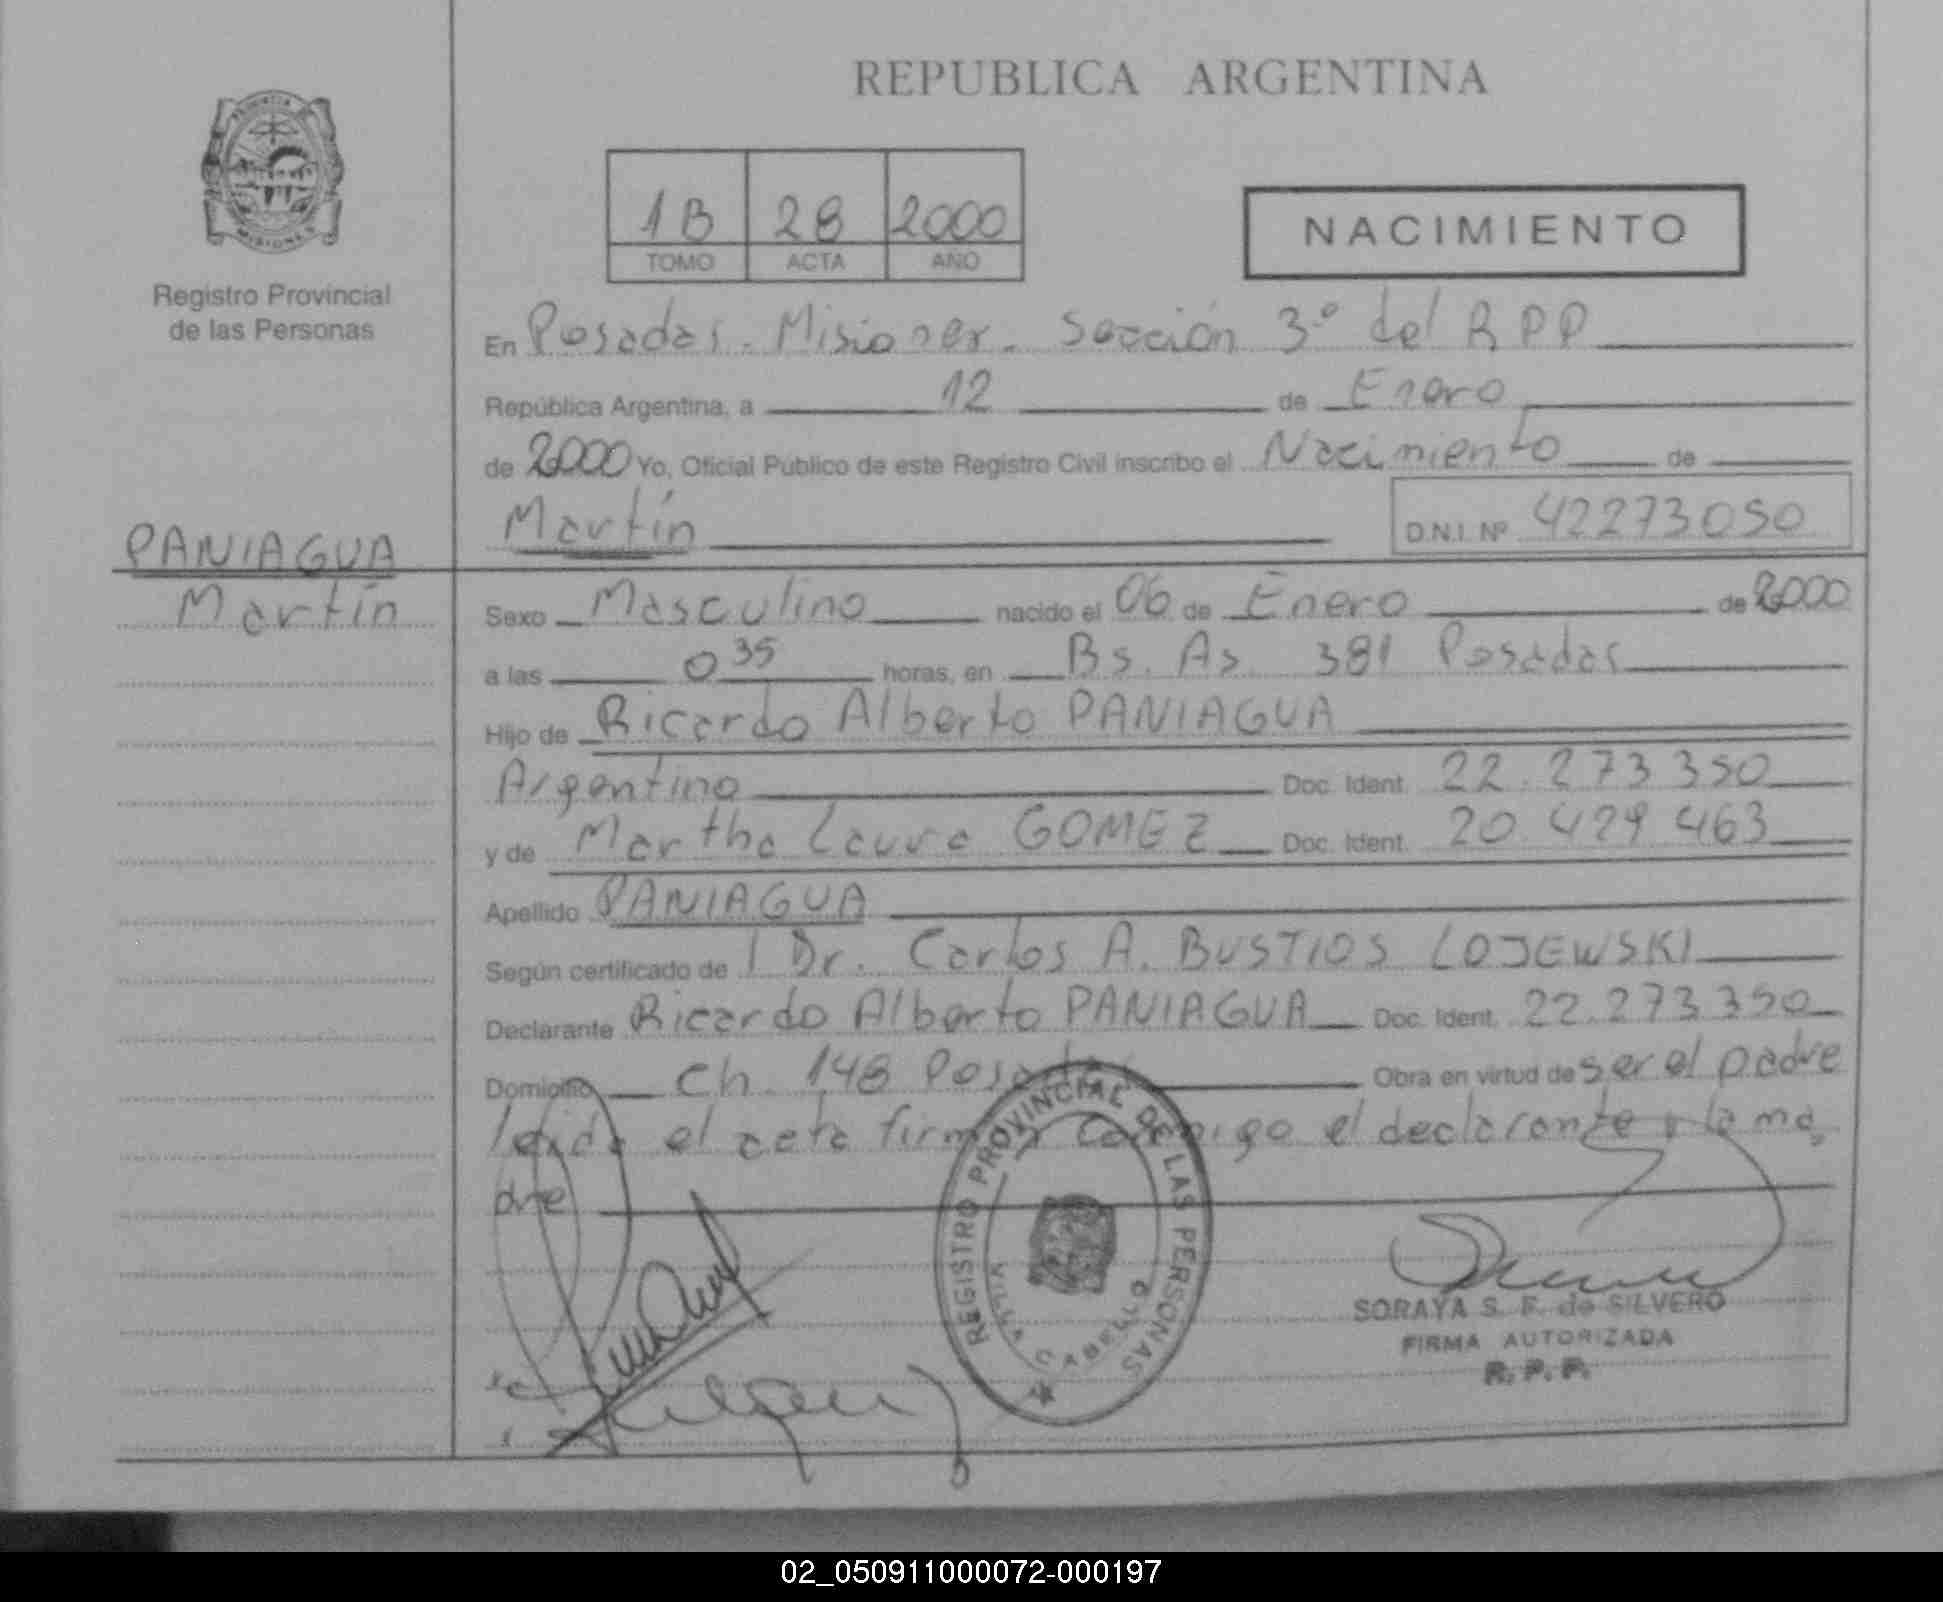 REPUBLICA ARGENTINA
PROVINCIA
MISIONES
Registro Provincial
de las Personas
1B 28 2000
TOMO ACTA AÑO
NACIMIENTO
En Posadas - Misiones - Sección 3º del R P P
República Argentina, a 12 de Enero
de 2000 Yo, Oficial Público de este Registro Civil inscribo el Nacimiento de
Martín D.N.I. Nº 42273050
PANIAGUA
Martín
Sexo Masculino nacido el 06 de Enero de 2000
a las 0 35 horas, en Bs. As. 381 Posadas
Hijo de Ricardo Alberto PANIAGUA
Argentino Doc. Ident. 22.273 350
y de Martha Laura GOMEZ Doc. Ident. 20.429 463
Apellido PANIAGUA
Según certificado de Dr. Carlos A. BUSTIOS LOJEWSKI
Declarante Ricardo Alberto PANIAGUA Doc. Ident. 22.273.350
Domicilio Ch. 148 Posadas Obra en virtud de ser el padre
leida el acta firman conmigo el declarante y la ma
dre
REGISTRO PROVINCIAL DE LAS PERSONAS
SORAYA S. F. de SILVERO
FIRMA AUTORIZADA
R. P. P.
02_050911000072-000197